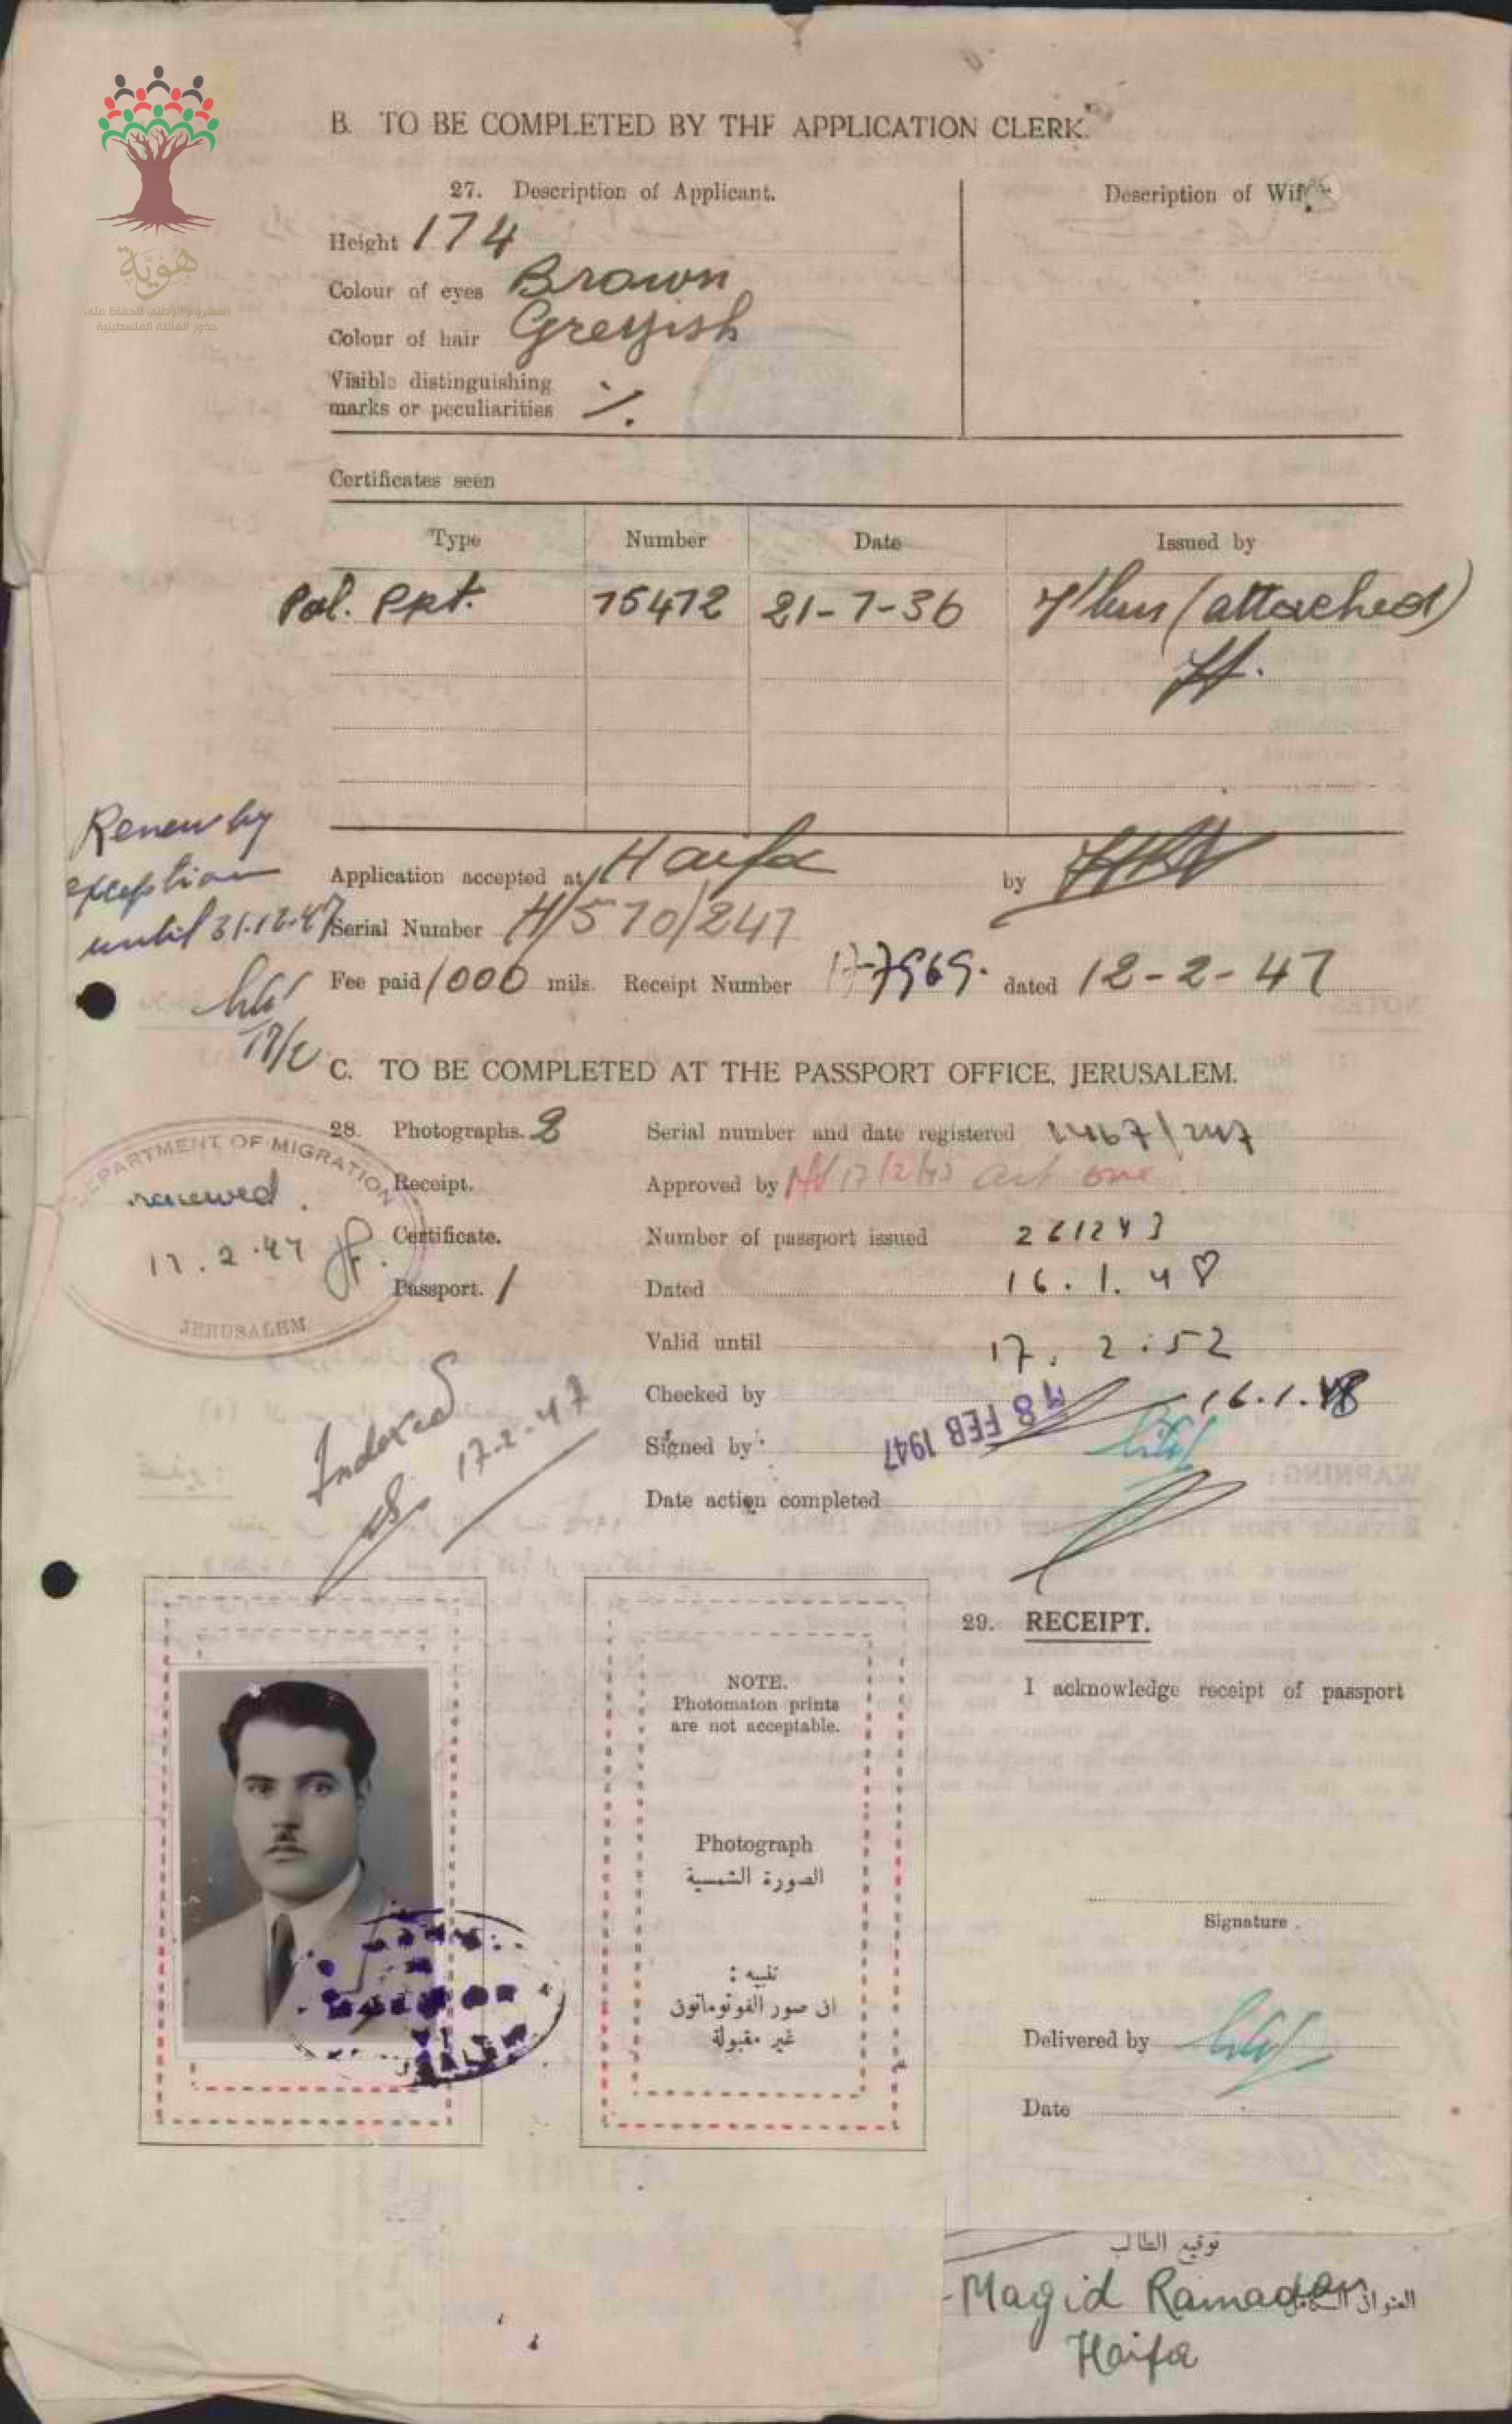 هوية
المشروع الوطني للحفاظ على
جذور العائلة الفلسطينية
B. TO BE COMPLETED BY THE APPLICATION CLERK.
27. Description of Applicant.
Description of Wife.
Height 174
Colour of eyes Brown
Colour of hair Greyish
Visible distinguishing
marks or peculiarities ./.
Certificates seen
Type Number Date Issued by
Pal. Ppt. 75472 21-7-36 J'lem (attached)
Renew by
exception
until 31.12.47
Application accepted at Haifa by
Serial Number H/570/247
Fee paid 1000 mils. Receipt Number dated 12-2-47
C. TO BE COMPLETED AT THE PASSPORT OFFICE, JERUSALEM.
28. Photographs. 2 Serial number and date registered
DEPARTMENT OF MIGRATION
renewed.
17.2.47
JERUSALEM
Receipt. Approved by
Certificate. Number of passport issued 261243
Passport. 1 Dated 16.1.48
Valid until 17.2.52
Checked by 16.1.48
Indexed
17-2-47
Signed by
FEB 1947
Date action completed
NOTE.
Photomaton prints
are not acceptable.
Photograph
الصورة الشمسية
تنبيه :
ان صور الفوتوماتون
غير مقبولة
29. RECEIPT.
I acknowledge receipt of passport
Signature.
Delivered by
Date
توقيع الطالب
Magid Ramadan
العنوان
Haifa